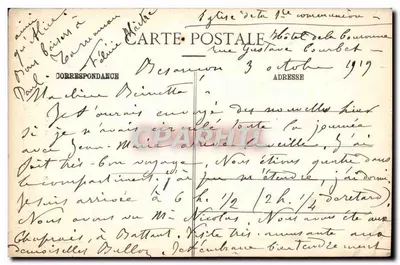 Eglise de la 1re communion
CARTE POSTALE
Hôtel de la Couronne
rue Gustave Courbet
CORRESPONDANCE
ADRESSE
Besançon 3 octobre 1919
Ma chère
Je t'aurais envoyé des nouvelles hier
si je n'avais toute la journée
avec Jean. arrivé la veille, j'ai
fait très bon voyage. Nous étions quatre dans
le compartiment, j'ai pu m'étendre, j'ai dormi
Je suis arrivée à 6 h. 1/2 (2h 1/4 de retard)
Nous avons vu Mr Nicolas. Nous avons été aux
Chaprais, à Battant. Visite très amusante aux
demoiselles Bulloz. Je t'embrasse bien tendrement
ainsi
qu'Alice.
Bons baisers à
Paul.